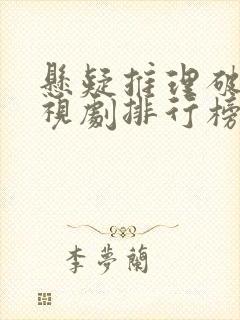 懸疑推理破
視劇排行榜
李夢蘭